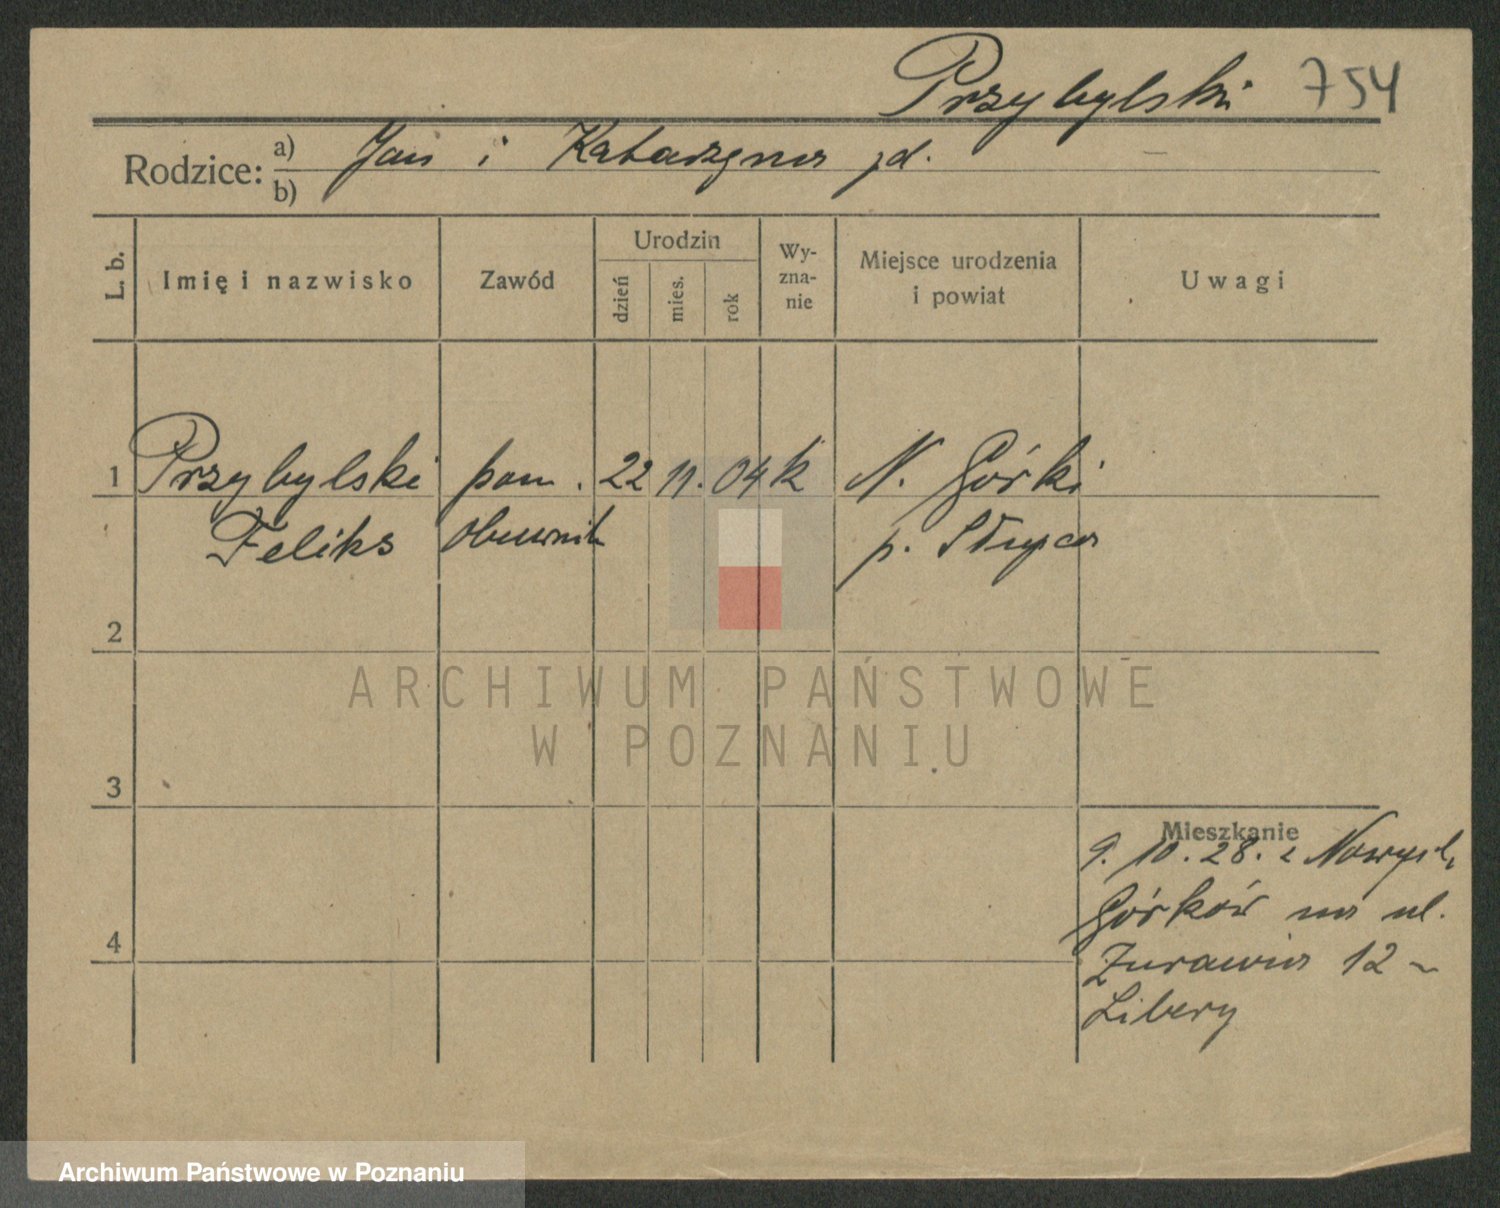 Przybylski 754
Rodzice: a) Jan i Katarzyna jd.
b)
L. b. Imię i nazwisko Zawód Urodzin dzień mies. rok Wy-zna-nie Miejsce urodzenia i powiat Uwagi
1 Przybylski pom. 22 11. 04 k N. Górki
Feliks obuwnik p. Słupca
2
ARCHIWUM PAŃSTWOWE
W POZNANIU
3
Mieszkanie
9. 10. 28. z Nowych
Górków na ul.
4
Żurawia 12
Libery
Archiwum Państwowe w Poznaniu